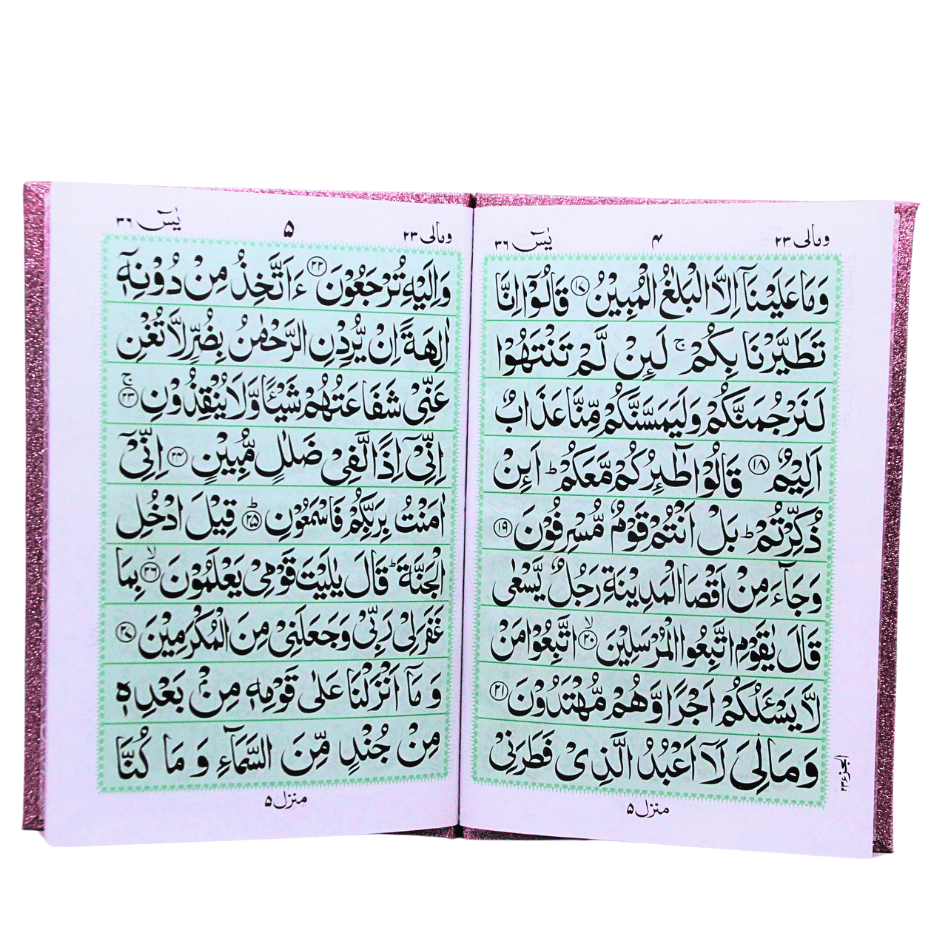 ومالی ۲۳ ۴ یٰسٓ ۳۶
وَمَا عَلَيْنَآ اِلَّا الْبَلٰغُ الْمُبِيْنُ ۝۱۷ قَالُوْٓا اِنَّا
تَطَيَّرْنَا بِكُمْ ۚ لَئِنْ لَّمْ تَنْتَهُوْا
لَنَرْجُمَنَّكُمْ وَلَيَمَسَّنَّكُمْ مِّنَّا عَذَابٌ
اَلِيْمٌ ۝۱۸ قَالُوْا طَآئِرُكُمْ مَّعَكُمْ ؕ اَئِنْ
ذُكِّرْتُمْ ؕ بَلْ اَنْتُمْ قَوْمٌ مُّسْرِفُوْنَ ۝۱۹
وَجَآءَ مِنْ اَقْصَا الْمَدِيْنَةِ رَجُلٌ يَّسْعٰى
قَالَ يٰقَوْمِ اتَّبِعُوا الْمُرْسَلِيْنَ ۝۲۰ۙ اتَّبِعُوْا مَنْ
لَّا يَسْـَٔلُكُمْ اَجْرًا وَّهُمْ مُّهْتَدُوْنَ ۝۲۱
وَمَالِىَ لَآ اَعْبُدُ الَّذِىْ فَطَرَنِىْ
الجزء ۲۳
منزل ۵
ومالی ۲۳ ۵ یٰسٓ ۳۶
وَاِلَيْهِ تُرْجَعُوْنَ ۝۲۲ ءَاَتَّخِذُ مِنْ دُوْنِهٖٓ
اٰلِهَةً اِنْ يُّرِدْنِ الرَّحْمٰنُ بِضُرٍّ لَّا تُغْنِ
عَنِّىْ شَفَاعَتُهُمْ شَيْـًٔا وَّلَا يُنْقِذُوْنِ ۝۲۳ۚ
اِنِّىْٓ اِذًا لَّفِىْ ضَلٰلٍ مُّبِيْنٍ ۝۲۴ اِنِّىْٓ
اٰمَنْتُ بِرَبِّكُمْ فَاسْمَعُوْنِ ۝۲۵ؕ قِيْلَ ادْخُلِ
الْجَنَّةَ ؕ قَالَ يٰلَيْتَ قَوْمِىْ يَعْلَمُوْنَ ۝۲۶ۙ بِمَا
غَفَرَ لِىْ رَبِّىْ وَجَعَلَنِىْ مِنَ الْمُكْرَمِيْنَ ۝۲۷
وَمَآ اَنْزَلْنَا عَلٰى قَوْمِهٖ مِنْۢ بَعْدِهٖ
مِنْ جُنْدٍ مِّنَ السَّمَآءِ وَمَا كُنَّا
منزل ۵